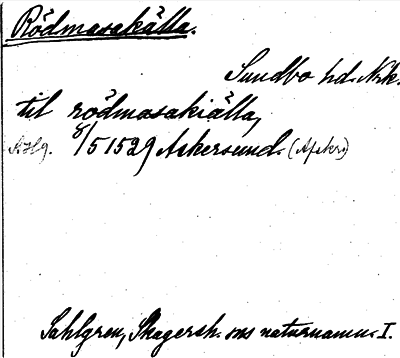 Rödmasakälla.
Sundbo hd. Nrk.
til rödmasakiälla,
8/5 1529 Askersund. (Afskr.)
Sahlgren, Skagersh. sns naturnamn. I.